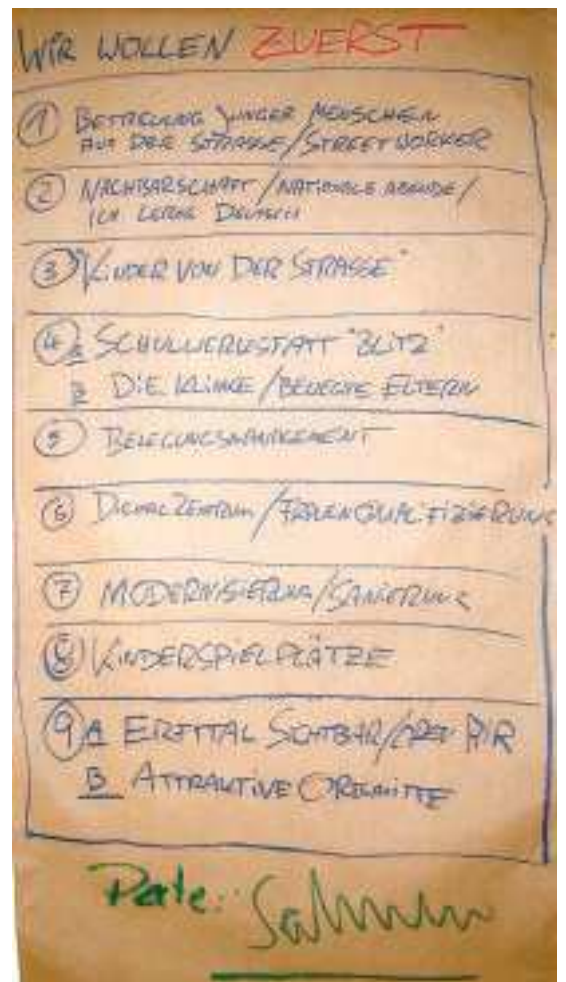 WIR WOLLEN ZUERST
1 BETREUUNG JUNGER MENSCHEN
AUF DER STRASSE/STREETWORKER
2 NACHBARSCHAFT/NATIONALE ABENDE/
ICH LERNE DEUTSCH
3 "KINDER VON DER STRASSE"
4 A SCHULWERKSTATT "BLITZ"
B DIE KLINKE/BELEGTE ELTERN
5 BELEGUNGSMANAGEMENT
6 ZENTRUM/FRAUENQUALIFIZIERUNG
7 MODERNISIERUNG/SANIERUNG
8 KINDERSPIELPLÄTZE
9 A ERFTTAL SICHTBAR/OPEN AIR
B ATTRAKTIVE ORTSMITTE
Pate: